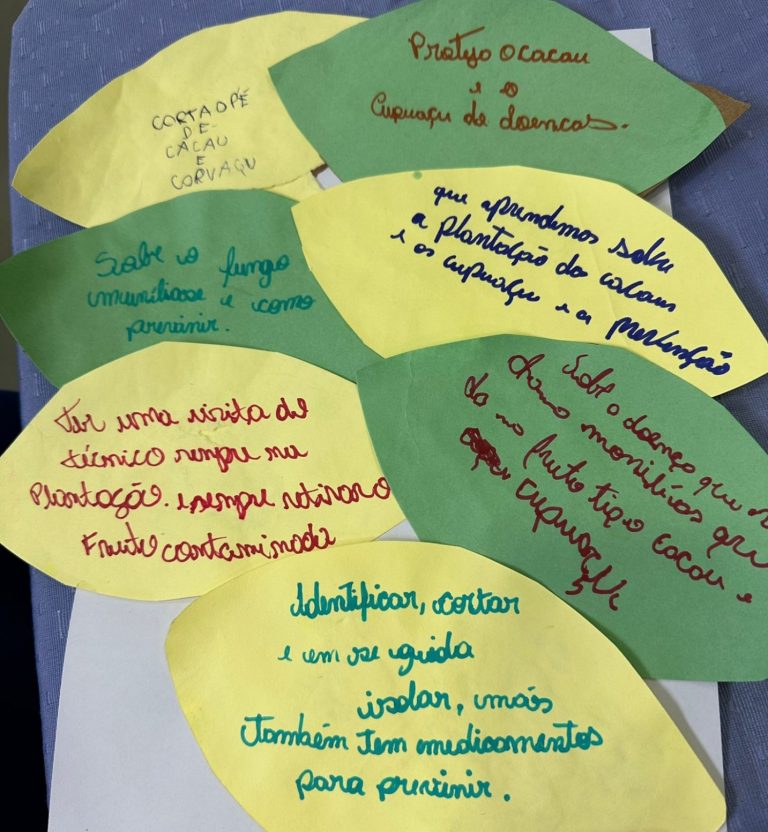 CORTA O PÉ
DE
CACAU
E
CORVAÇU
Protejo o cacau
e o
Cupuaçu de doencas.
Sobre o fungo
muniliase e como
previnir.
que aprendemos sobre
a plantação do cacau
e os cupuaçu e a prevenção
Ter uma visita de
técnico sempre na
Plantação. e sempre retirar o
Fruto contaminado
Sobre o doença que
chamo
da no fruto tipo cacau e
cupuaçu
Identificar, cortar
e em se guida
isolar, mais
também tem medicamentos
para previnir.